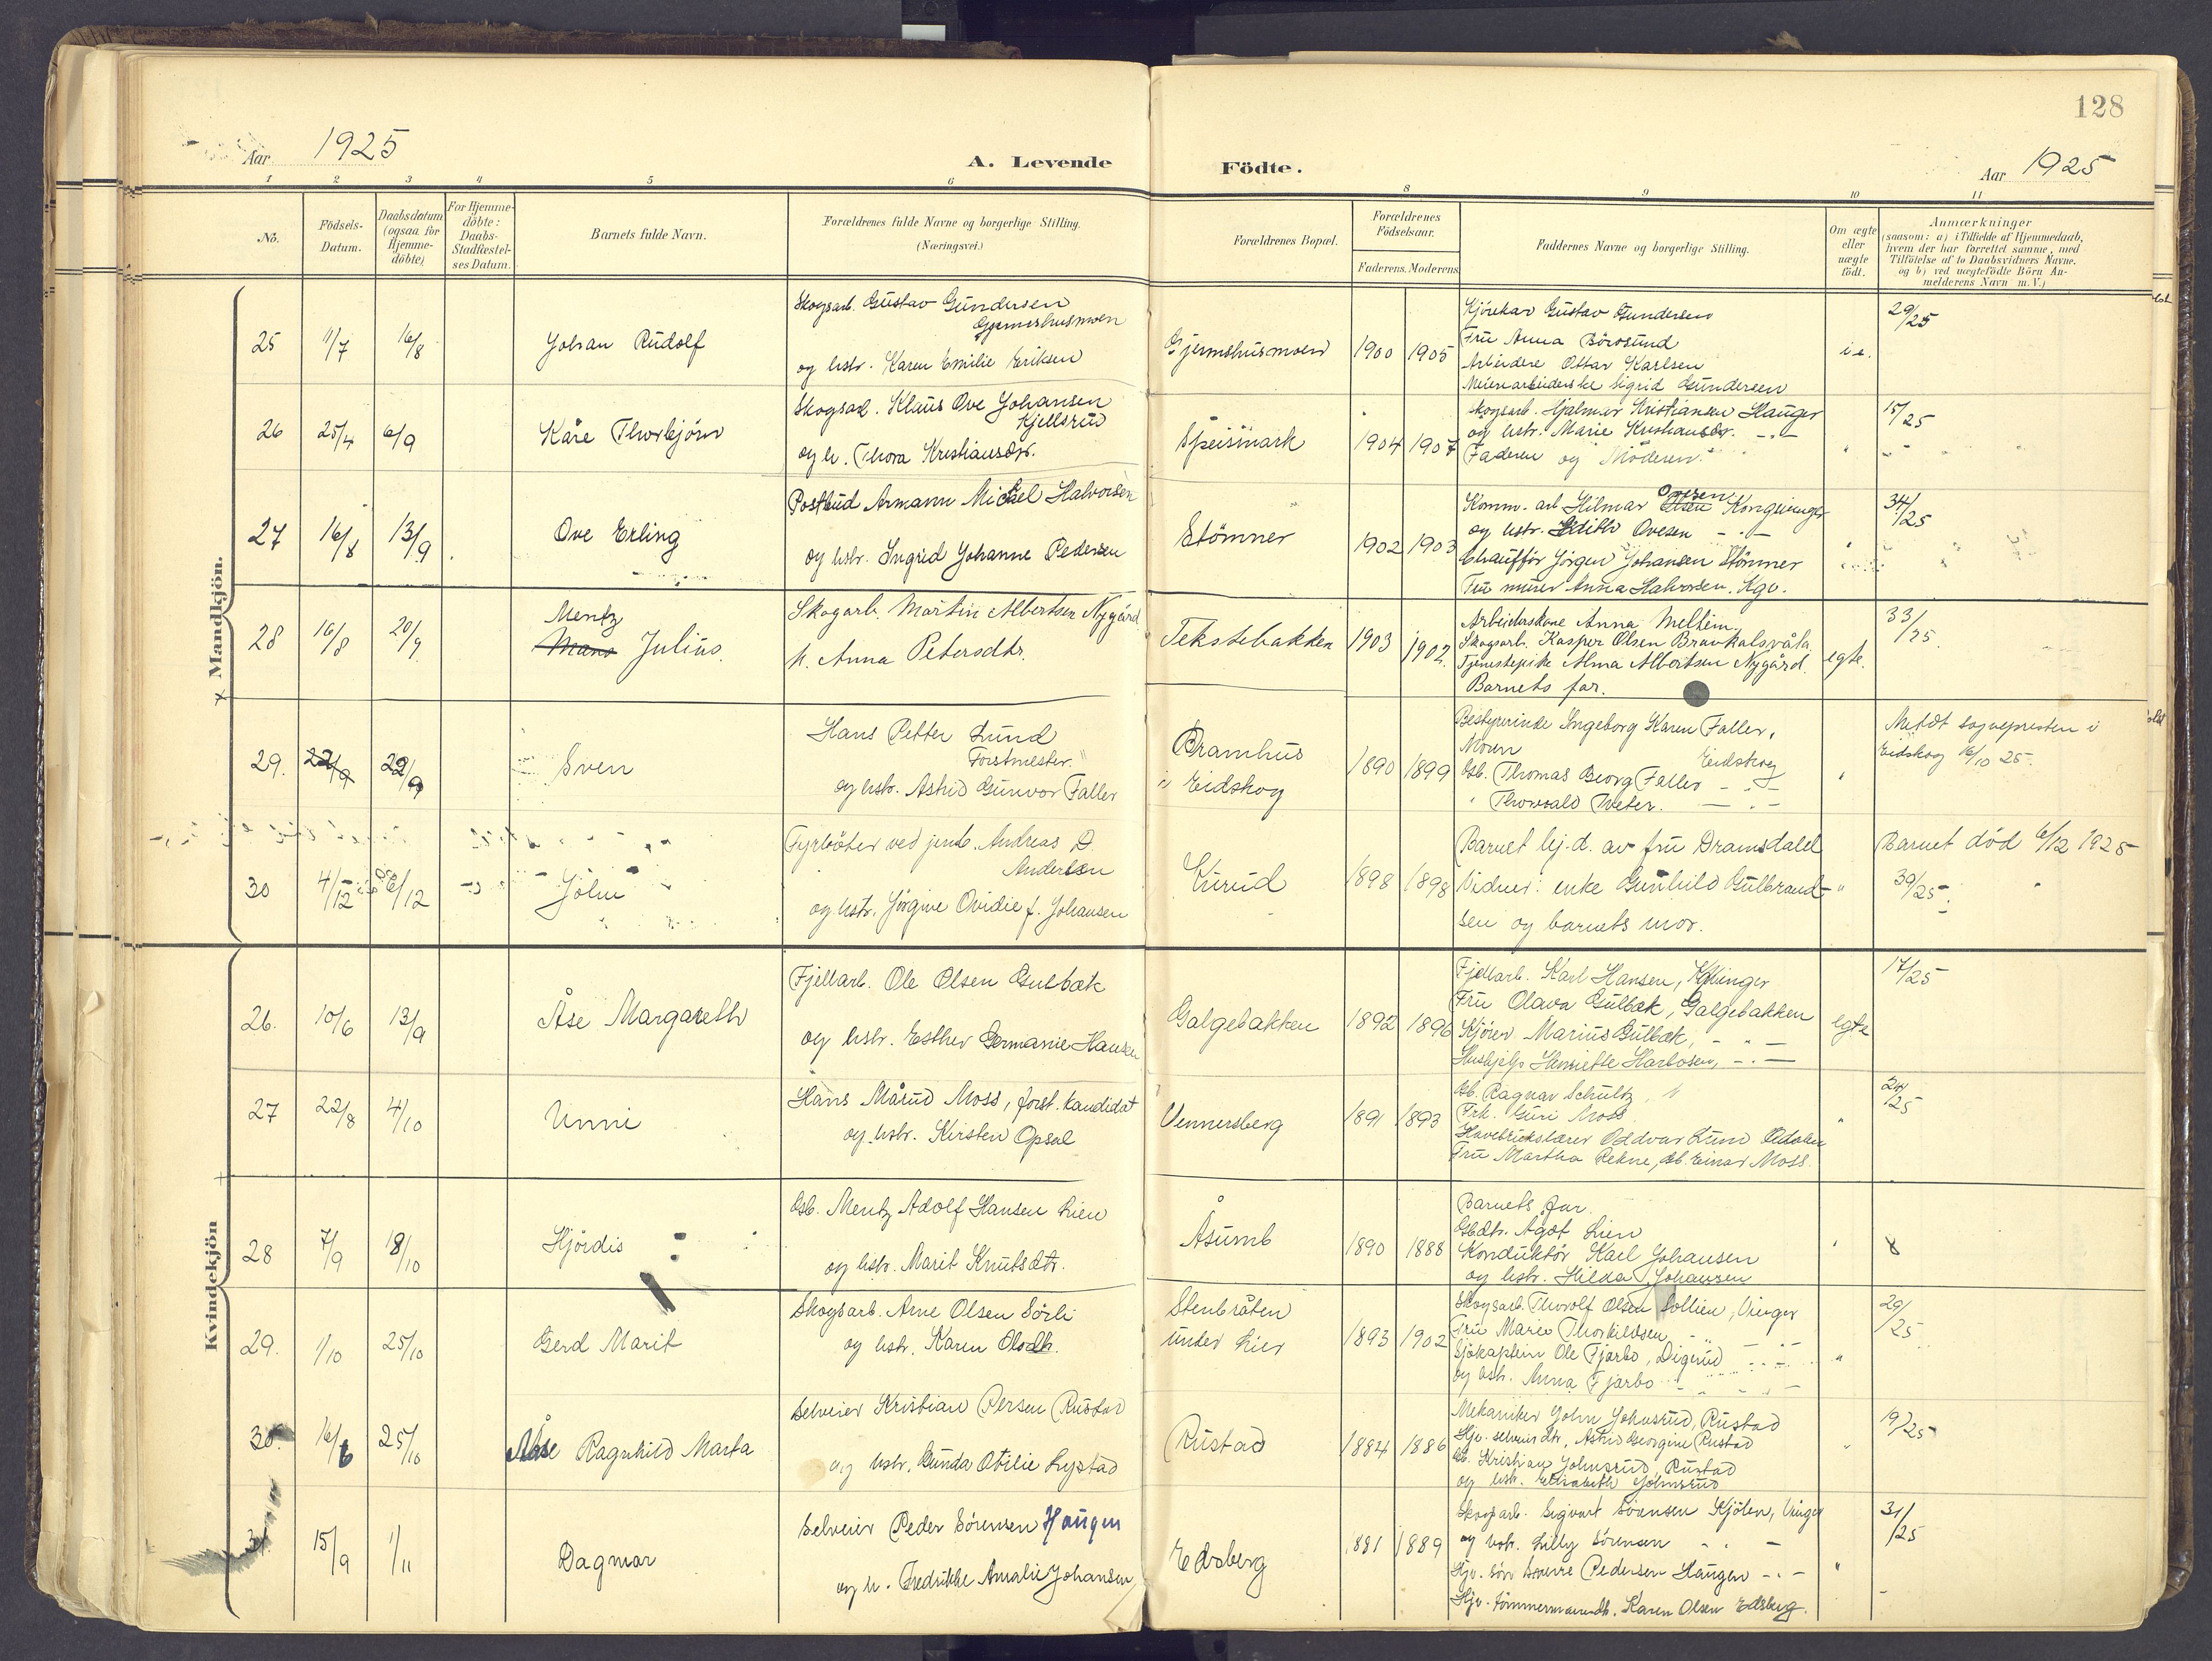 128
Aar 1925
A. Levende Födte.
Aar 1925
1 2 3 4 5 6 8 9 10 11
No.
Födsels-Datum.
Daabsdatum (ogsaa for Hjemme-döbte)
For Hjemme-döbte: Daabs-Stadfæstel-ses Datum.
Barnets fulde Navn.
Forældrenes fulde Navne og borgerlige Stilling. (Næringsvei.)
Forældrenes Bopæl.
Forældrenes Födselsaar.
Faderens. Moderens.
Faddernes Navne og borgerlige Stilling.
Om ægte eller uægte födt.
Anmærkninger
(saasom: a) i Tilfælde af Hjemmedaab,
hvem der har forrettet samme, med
Tilföielse af to Daabsvidners Navne.
og b) ved uægtefödte Börn An-
melderens Navn m. V.)
Mandkjön.
25 11/7 16/8 Johan Rudolf
Skogsarb. Gustav Gundersen
Gjermshusmoen
og hstr. Karen Emilie Eriksen
Gjermshusmoen 1900 1905
Kjörekar Gustav Gundersen
Fru Anna Börosund
Arbeidere Ottar Karlsen
Meieriarbeiderske Sigrid Gundersen
i e.
29/25
26 25/4 6/9 Kåre Thorbjörn
Skogsarb. Klaus Ove Johansen
Kjellsrud
og h. Thora Kristiansdtr.
Speismark 1904 1907
Skogsarb. Hjalmar Kristiansen Hauger
og hstr. Marie Kristiansdr. -"-
Faderen og Moderen.
15/25
27 16/8 13/9 Ove Erling
Postbud Armann Mickael Halvorsen
og hstr. Ingrid Johanne Pedersen
Stömner 1902 1903
Komm. arb Hilmar Olsen Ovesen Kongsvinger
og hstr. Edith Ovesen -"-
Chaufför Jörgen Johansen Stömner
Fru murer Anna Halvorsen. Kgv.
34/25
28 16/8 20/9 Mentz
Mans Julius.
Skogarb. Martin Albertsen Nygård
h. Anna Petersdtr.
Tekstebakken 1903 1902.
Arbeiderskone Anna Melhim.
Skogsarb. Kasper Olsen
Tjenestepike Alma Albertsen Nygård.
Barnets far.
egte.
33/25
29. 22/9 22/9 Sven
Hans Petter Lund
Forstmester.
og hstr. Astrid Gunvor Faller
Bramhus
i Eidskog 1890 1899
Bestyrerinde Ingeborg Karen Faller,
Moren Eidskog
Gsb. Thomas Georg Faller -"-
" Thorvald Tveter. -"-
"
Meldt sognepresten i
Eidskog 16/10 25.
30 4/12 6/12 John
Fyrböter ved jernb. Andreas D.
Andersen
og hstr. Jörgine Ovidie f. Johansen
Kurud 1898 1898
Barnet hj.d. av fru Dramsdalel
Vidner: enke Gunhild Gulbrand-
sen og barnets mor.
"
Barnet död 6/12 1925
39/25.
Kvindekjön
26. 10/6 13/9 Åse Margareth
Fjellarb. Ole Olsen Gulbæk
og hstr. Esther Germanie Hansen
Galgebakken 1892 1896
Fjellarb. Karl Hansen,
Fru Olava Gulbæk, Galgebakken
Kjörer Marius Gulbæk, -"-
Hushjelp Henriette Karlosen, -"-
egte
17/25
27 22/8 4/10 Unni
Hans Mårud Moss, forst. kandidat
og hstr. Kirsten Opsal
Vennersberg 1891 1893
Gsb. Ragnar Schultz,
Frk. Guri Moss
Havebrukslærer Oddvar Lund Odalen
Fru Martha Rekne, gsb. Einar Moss.
"
24/25
28 7/9 18/10 Hjördis
Gsb. Mentz Adolf Hansen Lien
og hstr. Marit Knutsdtr.
Åsumb 1890 1888
Barnets far.
Gsbdtr. Agot Lien
Konduktör Karl Johansen
og hstr. Hilda Johansen
"
8
29. 1/10 25/10 Gerd Marit
Skogsarb. Arne Olsen Sörli
og hstr. Karen Olsdtr.
Stenbråten
under Lier 1893 1902
Skogsarb. Thorolf Olsen Sollien, Vinger
Fru Marie Thorkildsen -"-
Sjökaptein Ole Fjarbo, Digerud -"-
og hstr. Anna Fjarbo -"-
"
29/25
30. 16/6 25/10 Åse Ragnhild Marta
Selveier Kristian Persen Rustad
og hstr. Gunda Otilie Lystad
Rustad 1884 1886
Mekaniker John Johnsrud, Rustad
Hjv. selveierdtr. Astrid Georgine Rustad
Gb. Kristian Johnsrud, Rustad
og hstr. Elisabeth Johnsrud
"
19/25
31. 15/9 1/11 Dagmar
Selveier Peder Sörensen Haugen
og h. Fredrikke Amalie Johansen
Edsberg 1881 1889
Skogsarb. Sigvart Sörensen Kjölen, Vinger
og hstr. Lilly Sörensen -"-
Hjv. sön Sverre Pedersen Haugen -"-
Hjv. tömmermannsdtr. Karen Olsen Edsberg.
"
31/25